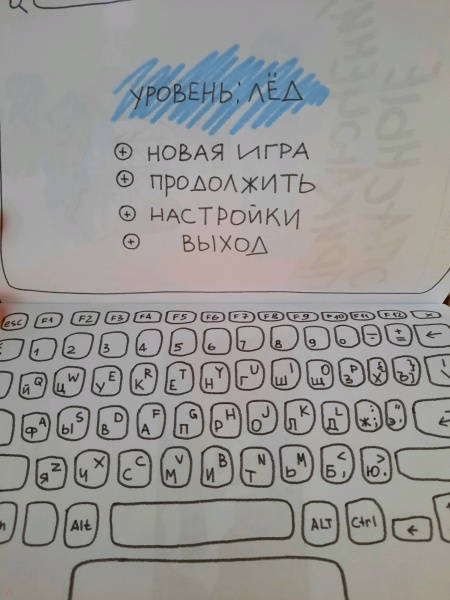 УРОВЕНЬ: ЛЁД
НОВАЯ ИГРА
ПРОДОЛЖИТЬ
НАСТРОЙКИ
ВЫХОД
esc F1 F2 F3 F4 F5 F6 F7 F8 F9 F10 F11 F12 ×
1 2 3 4 5 6 7 8 9 0 - + = ←
Й Q Ц W У E К R Е T Н Y Г U Ш I Щ O З P Х { Ъ }
Ф A Ы S В D А F П G Р H О J Л K Д L Ж ; Э "
Я Z Ч X С C М V И B Т N Ь M Б < , Ю >
Alt ALT Ctrl ←